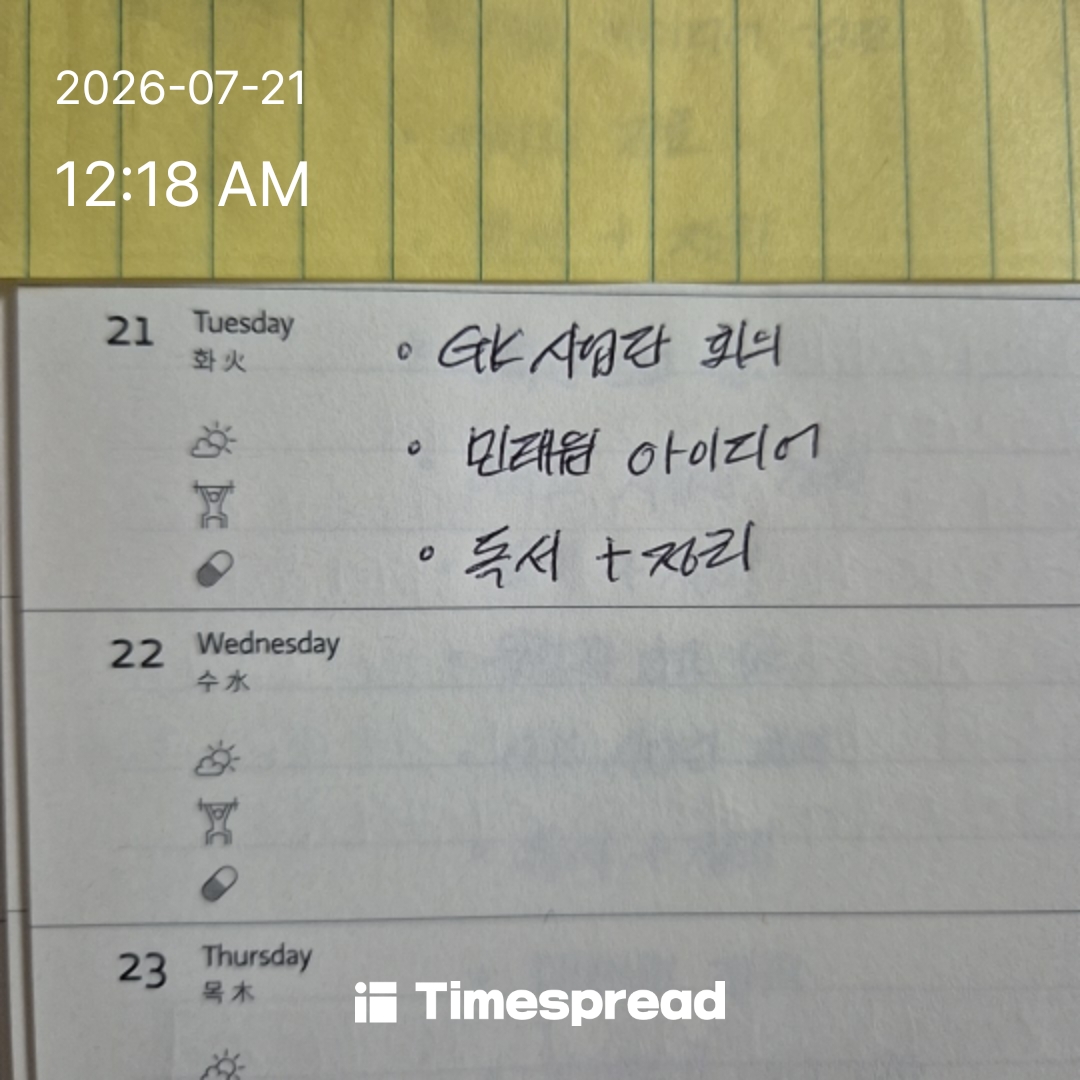 2026-07-21
12:18 AM
21 Tuesday
화 火
• GK 사업단 회의
• 민래웜 아이디어
• 독서 + 정리
22 Wednesday
수 水
23 Thursday
목 木
Timespread